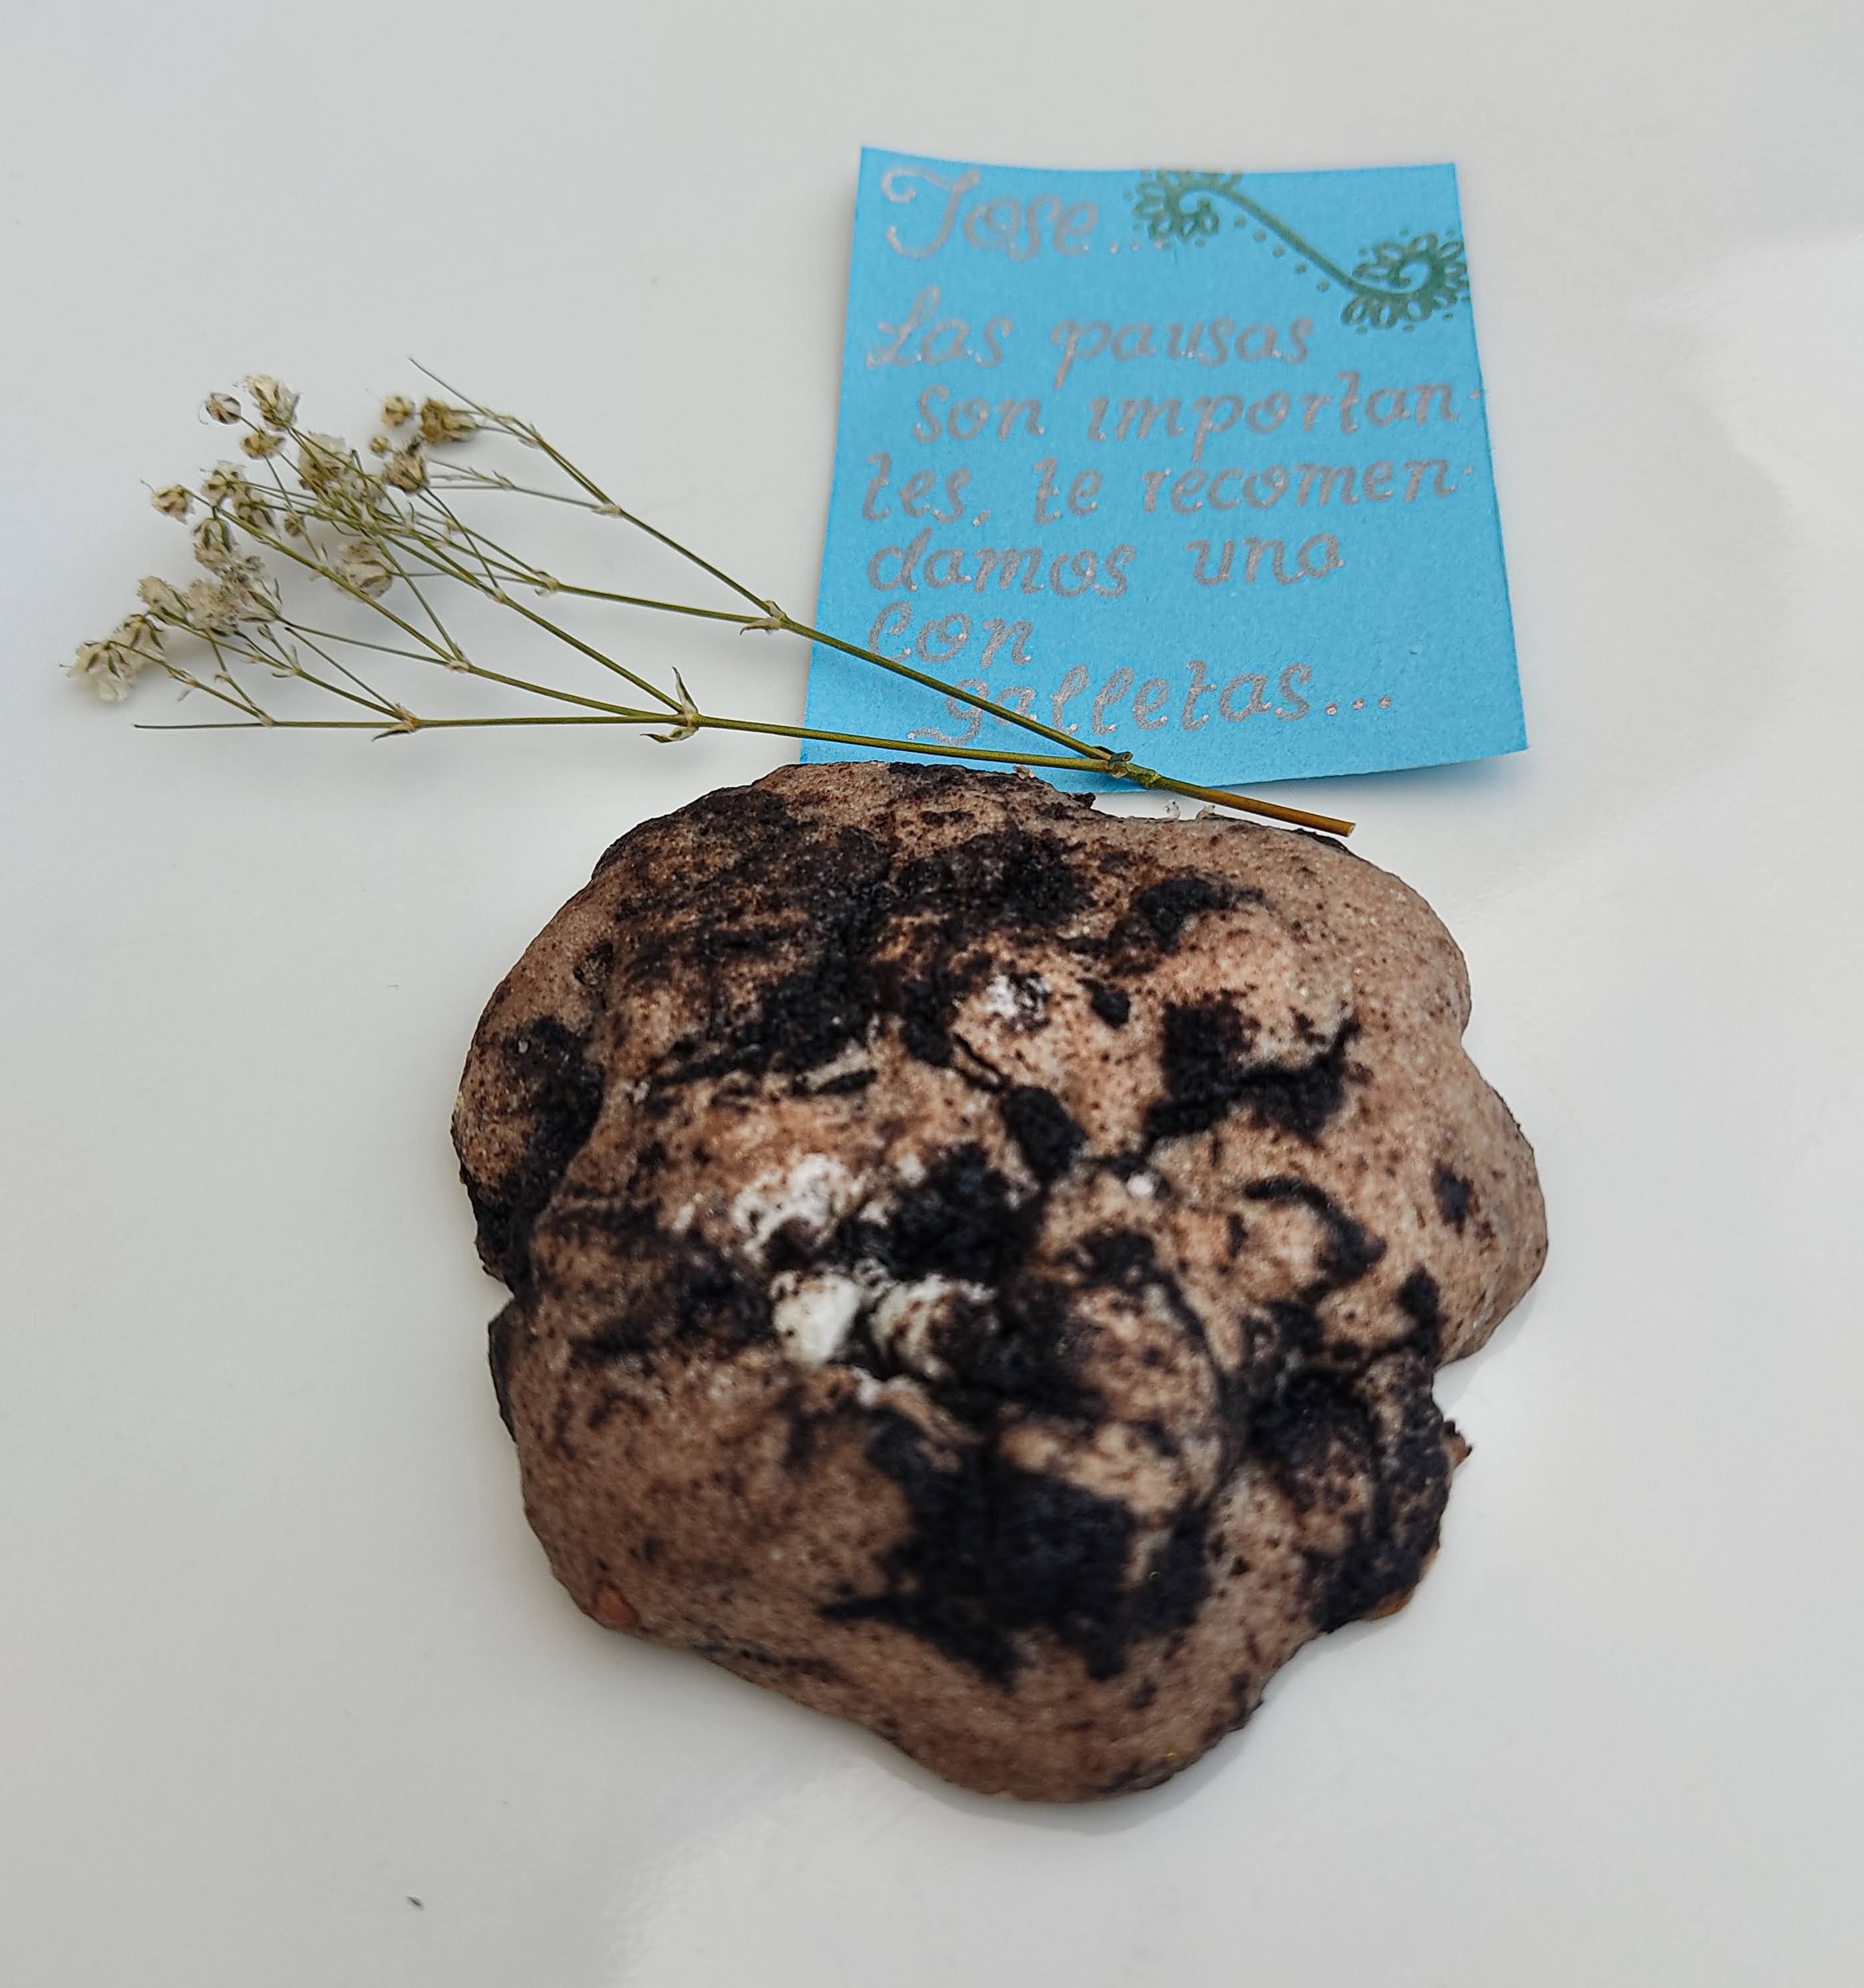 Jose...
Las pausas
son importan-
tes, te recomen-
damos una
con
galletas...